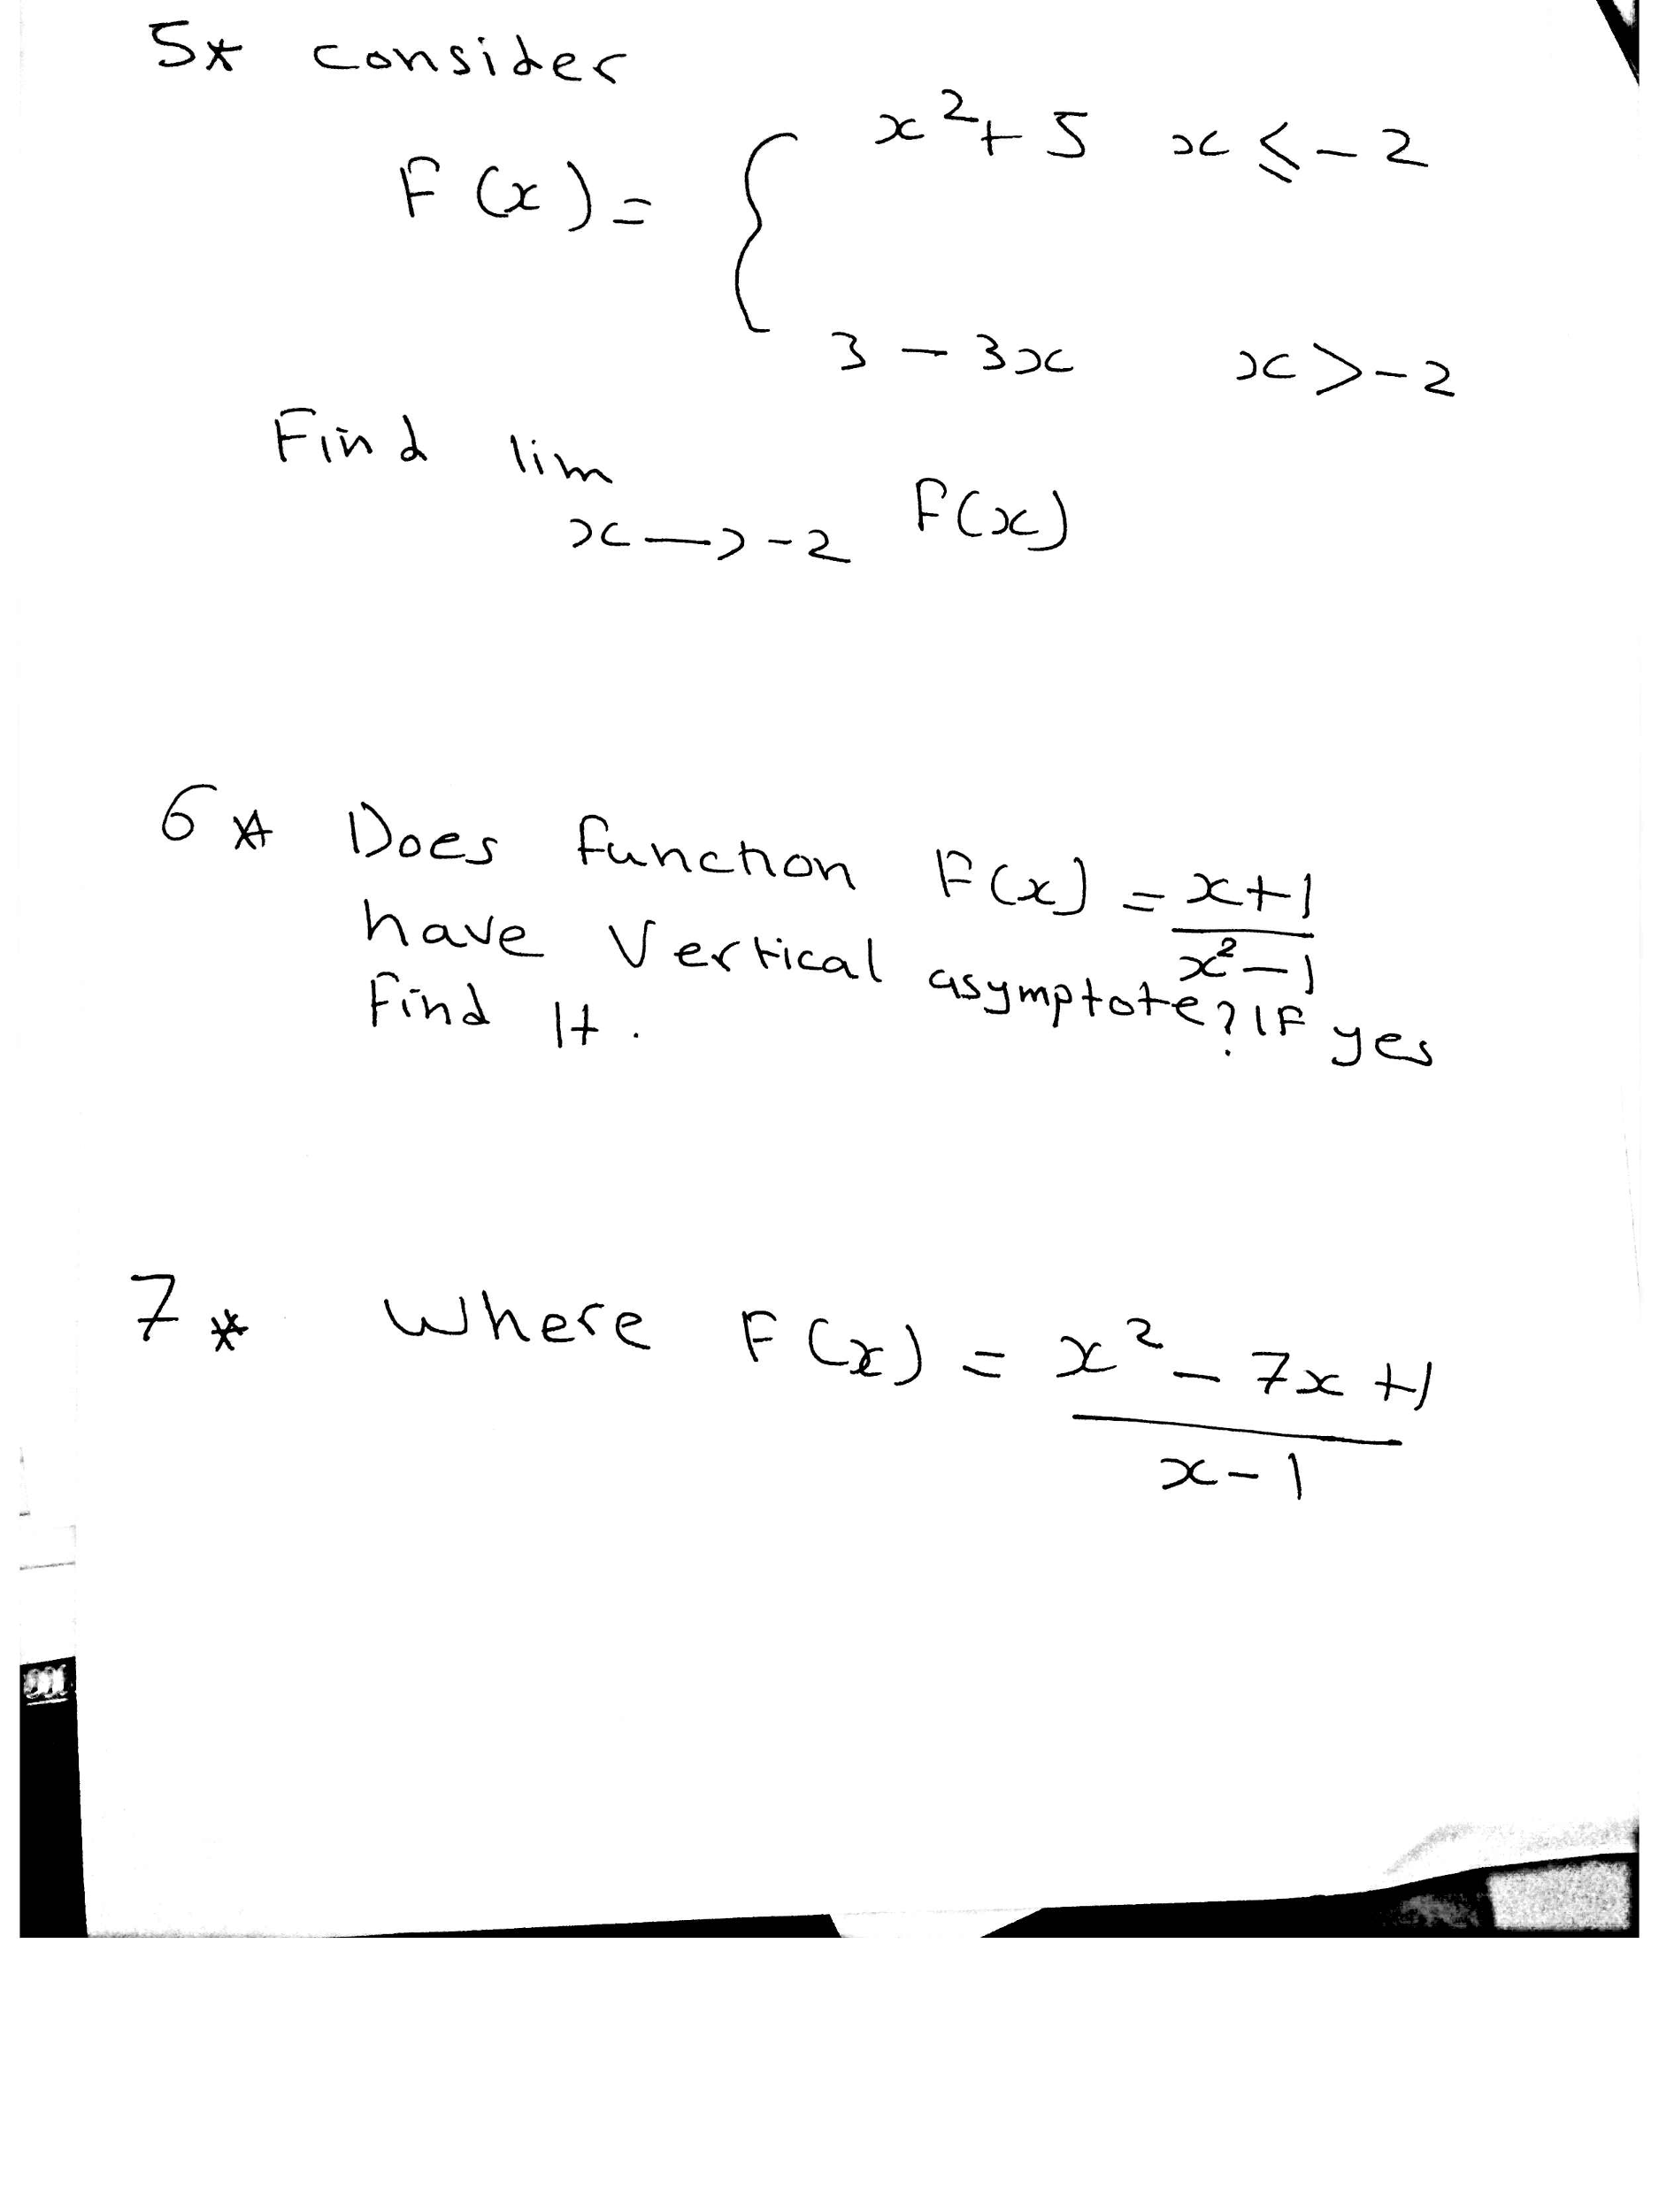 5* consider
F(x) = { x² + 5 x ≤ -2
3 - 3x x > -2
Find lim F(x)
x → -2
6* Does function F(x) = x+1
have Vertical asymptote? IF yes x²-1
Find It.
7* Where F(x) = x² - 7x + 1
x - 1